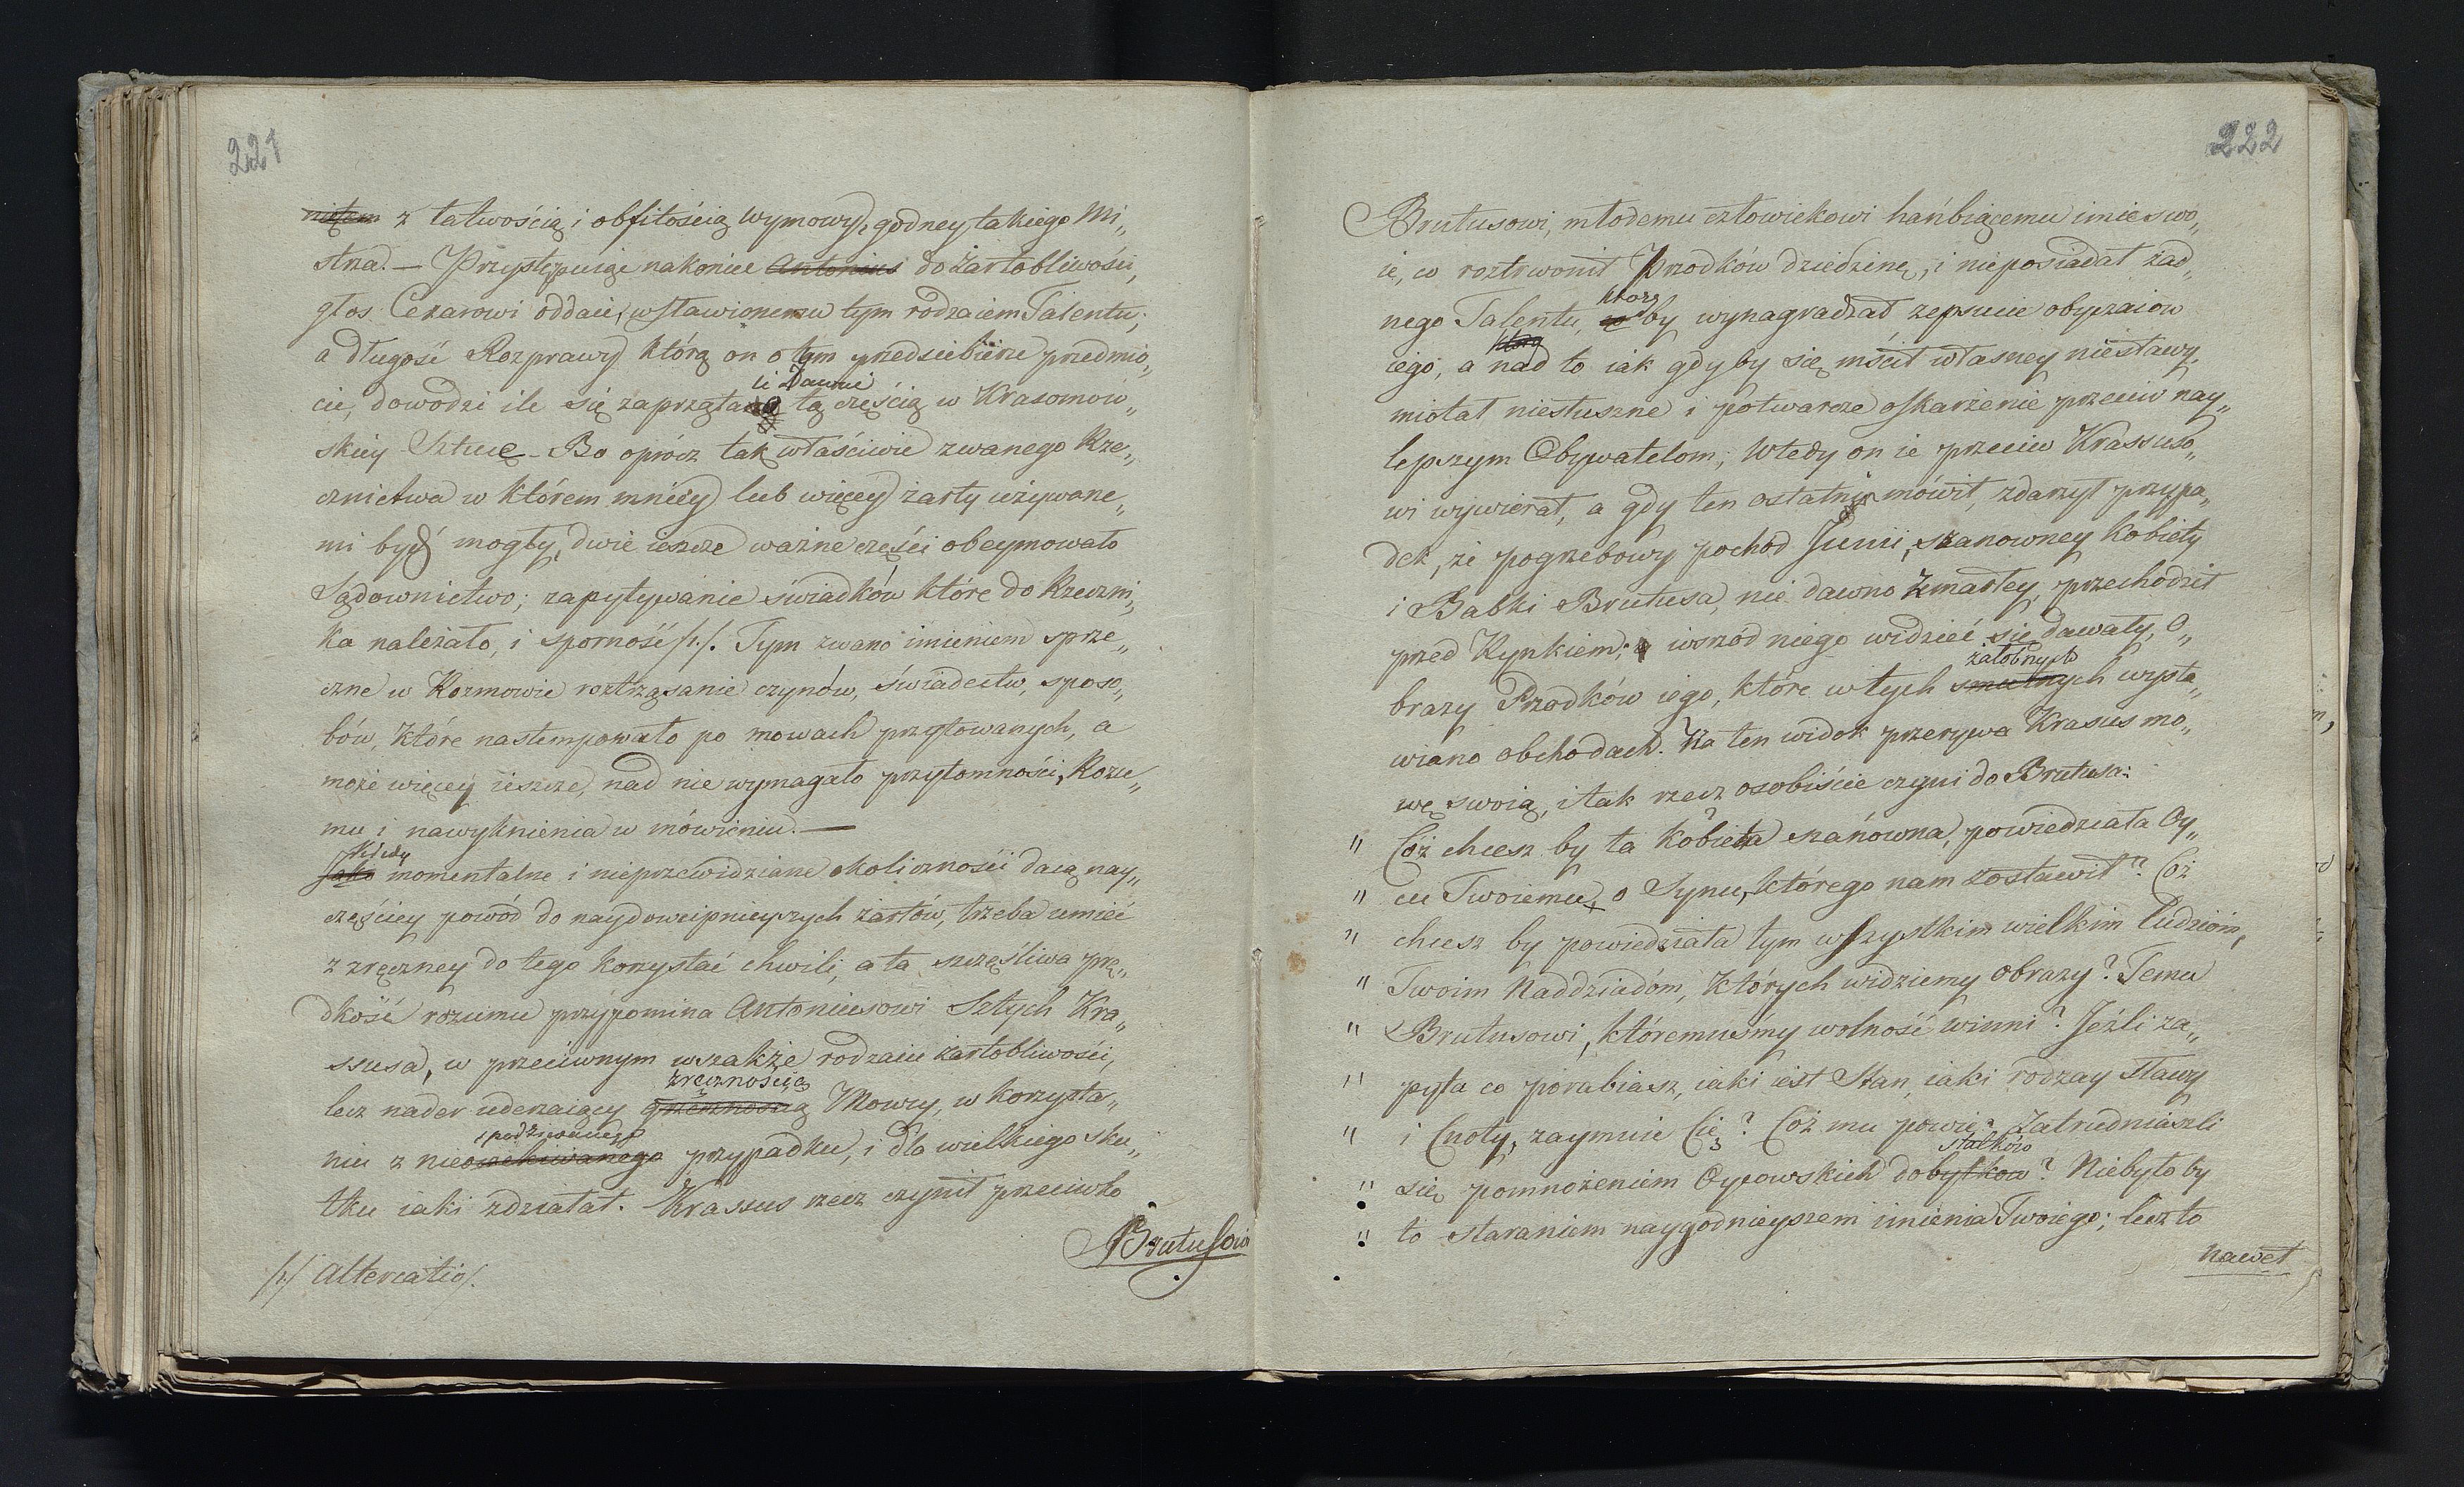 221
niętem z łatwością i obfitością wymowy, godney takiego Mi„
strza. — Przystępuiąc nakoniec Antonius do Żartobliwości,
głos Cezarowi oddaie, wsławionemu tym rodzaiem Talentu;
a długość Rozprawy którą on o tym przedsiebierze przedmio„
li Dawni
cie, dowodzi ile się zaprząta tą częścią w Krasomow„
skiey Sztuce - Bo oprócz tak właściwie zwanego Rze„
cznictwa w którem mniey lub więcey żarty używane„
mi być mogły, dwie ieszcze ważne części obeymowało
Sądownictwo; zapytywanie świadków które do Rzeczni„
ka należało, i sporność /1/. Tym zwano imieniem sprze„
czne w Rozmowie roztrząsanie czynów, świadectw, sposo„
bów, które nastempowało po mowach przytowanych, a
może więcey ieszcze, nad nie wymagało przytomności, Rozu„
mu i nawyknienia w mówieniu. —
Kiedy
Jako momentalne i nieprzewidziane okoliczności daią nay„
częściey powód do naydowcipnieyszych żartów, trzeba umieć
z zręczney do tego korzystać chwili, a ta szczęśliwa prę„
dkość rozumu przypomina Antoniusowi Sztych Kra„
ssusa, w przeciwnym wszakże rodzaiu żartobliwości,
zręcznością
lecz nader uderzaiący grzecznością Mowy, w korzysta„
spodziewanego
niu z nieoczekiwanego przypadku, i dla wielkiego sku„
tku iaki zdziałał. Krassus rzecz czynił przeciwko
Brutusowi
/1/ Altercatio/.
222
Brutusowi, młodemu człowiekowi hańbiącemu imie swo„
ie, co roztrwonił Przodków dziedzinę, i nieposiadał żad„
który
nego Talentu, co by wynagradzał zepsucie obyczaiow
który
iego, a nad to iak gdyby się mścił własney niesławy,
miotał niesłuszne i potwarcze oskarżenie przeciw nay„
lepszym Obywatelom; Wtedy on ie przeciw Krassuso„
wi wywierał, a gdy ten ostatni mówił, zdarzył przypa„
dek, że pogrzebowy pochód Junii, szanowney Kobiety
i Babki Brutusa, nie dawno zmarłey, przechodził
przed Rynkiem; a wsrzód niego widzieć się dawały, O„
żałobnych
brazy Przodków iego, które w tych smutnych wysta„
wiano obchodach. Na ten widok przerywa Krasus mo„
wę swoią, i tak rzecz osobiście czyni do Brutusa:
" Cóż chcesz by ta Kobieta szanowna, powiedziała Oy„
" cu Twoiemu, o Synu, którego nam zostawił? Cóż
" chcesz by powiedziała tym wszystkim wielkim ludziom,
" Twoim Naddziadóm, których widziemy obrazy? Temu
" Brutusowi, któremuśmy wolność winni? Jeźli za„
" pyta co porabiasz, iaki iest Stan, iaki rodzay Sławy
" i Cnoty, zaymuie Cię? Cóż mu powie? Zatrudniaszli
statków
" się pomnożeniem Oycowskich dobytkow? Niebyłoby
" to staraniem naygodnieyszem imienia Twoiego; lecz to
nawet